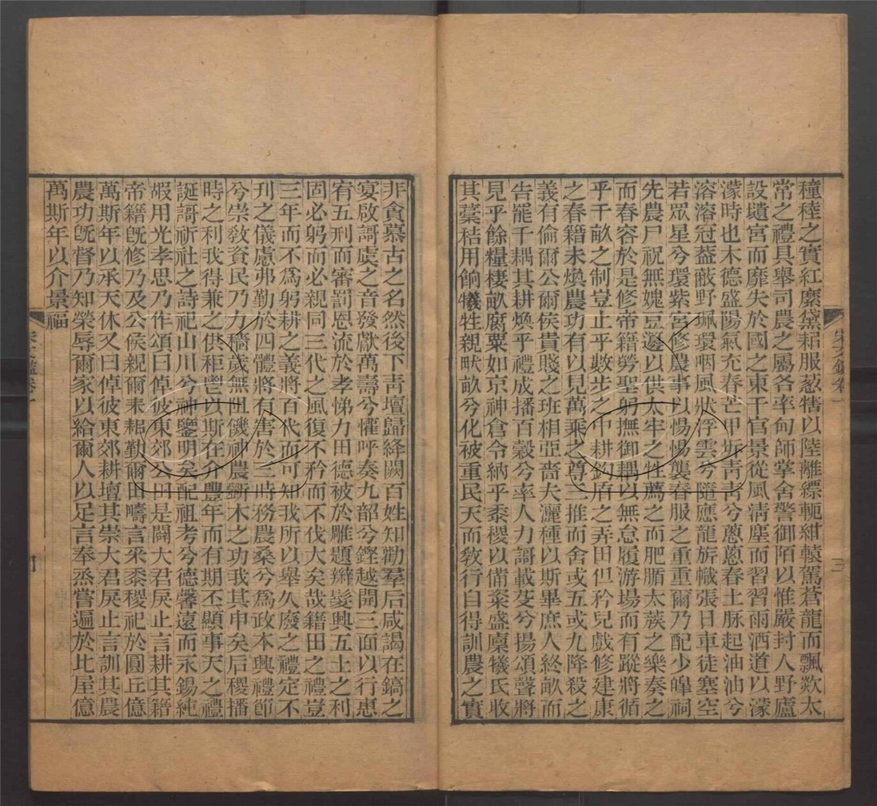 種稑之實紅縻黛耜服蔥犗以陸離縹軛紺轅駕蒼龍而飄欻太
常之禮具舉司農之屬各率甸師掌舍警御陌以惟嚴封人野廬
設壝宮而靡失於國之東千官景從風淸塵而習習雨洒道以濛
濛時也木德盛陽氣充春芒甲坼靑靑兮蔥蔥春土脉起油油兮
溶溶冠葢蔽野珮環咽風狀浮雲兮隨應龍旂幟張日車徒塞空
若眾星兮環紫宮修農事以惕惕襲春服之重重爾乃配少皥祠
先農尸祝無媿豆籩以供太牢之牲薦之而肥腯太蔟之樂奏之
而舂容於是修帝籍勞聖躬撫御耦以無怠履游場而有蹤將循
乎千畝之制豈止乎數步之中耕鉤盾之弄田但矜兒戲修建康
之春籍未煥農功有以見萬乘之尊三推而舍或五或九降殺之
義有倫爾公爾侯貴賤之班相亞嗇夫灑種以斯畢庶人終畝而
告罷千耦其耕煥乎禮成播百穀兮率人力謌載芟兮揚頌聲將
見乎餘糧棲畝腐粟如京神倉令納乎黍稷以備粢盛廩犧氏收
其藁秸用餉犧牲親畎畝兮化被重民天而敎行自得訓農之實
非貪慕古之名然後下靑壇歸絳闕百姓知勸羣后咸謁在鎬之
宴啟謌虞之音發獻萬壽兮懽呼奏九韶兮鏗越開三面以行惠
宥五刑而審罰恩流於孝悌力田德被於雕題辮髮興五土之利
固必躬而必親同三代之風復不矜而不伐大矣哉籍田之禮豈
三年而不爲躬耕之義將百代而可知我所以舉久廢之禮定不
刋之儀慮弗勤於四體將有害於三時務農桑兮爲政本興禮節
兮崇敎資民乃力穡歲無阻饑神農斲木之功我其申矣后稷播
時之利我得兼之供秬鬯以斯在介豐年而有期丕顯事天之禮
誕謌祈社之詩祀山川兮神鑒明矣配祖考兮德馨遠而永錫純
嘏用光孝思乃作頌曰倬彼東郊公田是闢大君戾止言耕其籍
帝籍旣修乃及公侯親爾耒耜勤爾田疇言采黍稷祀於圓丘億
萬斯年以承天休又曰倬彼東郊耕壇其崇大君戾止言訓其農
農功旣督乃知榮辱爾家以給爾人以足言奉烝嘗遍於比屋億
萬斯年以介景福